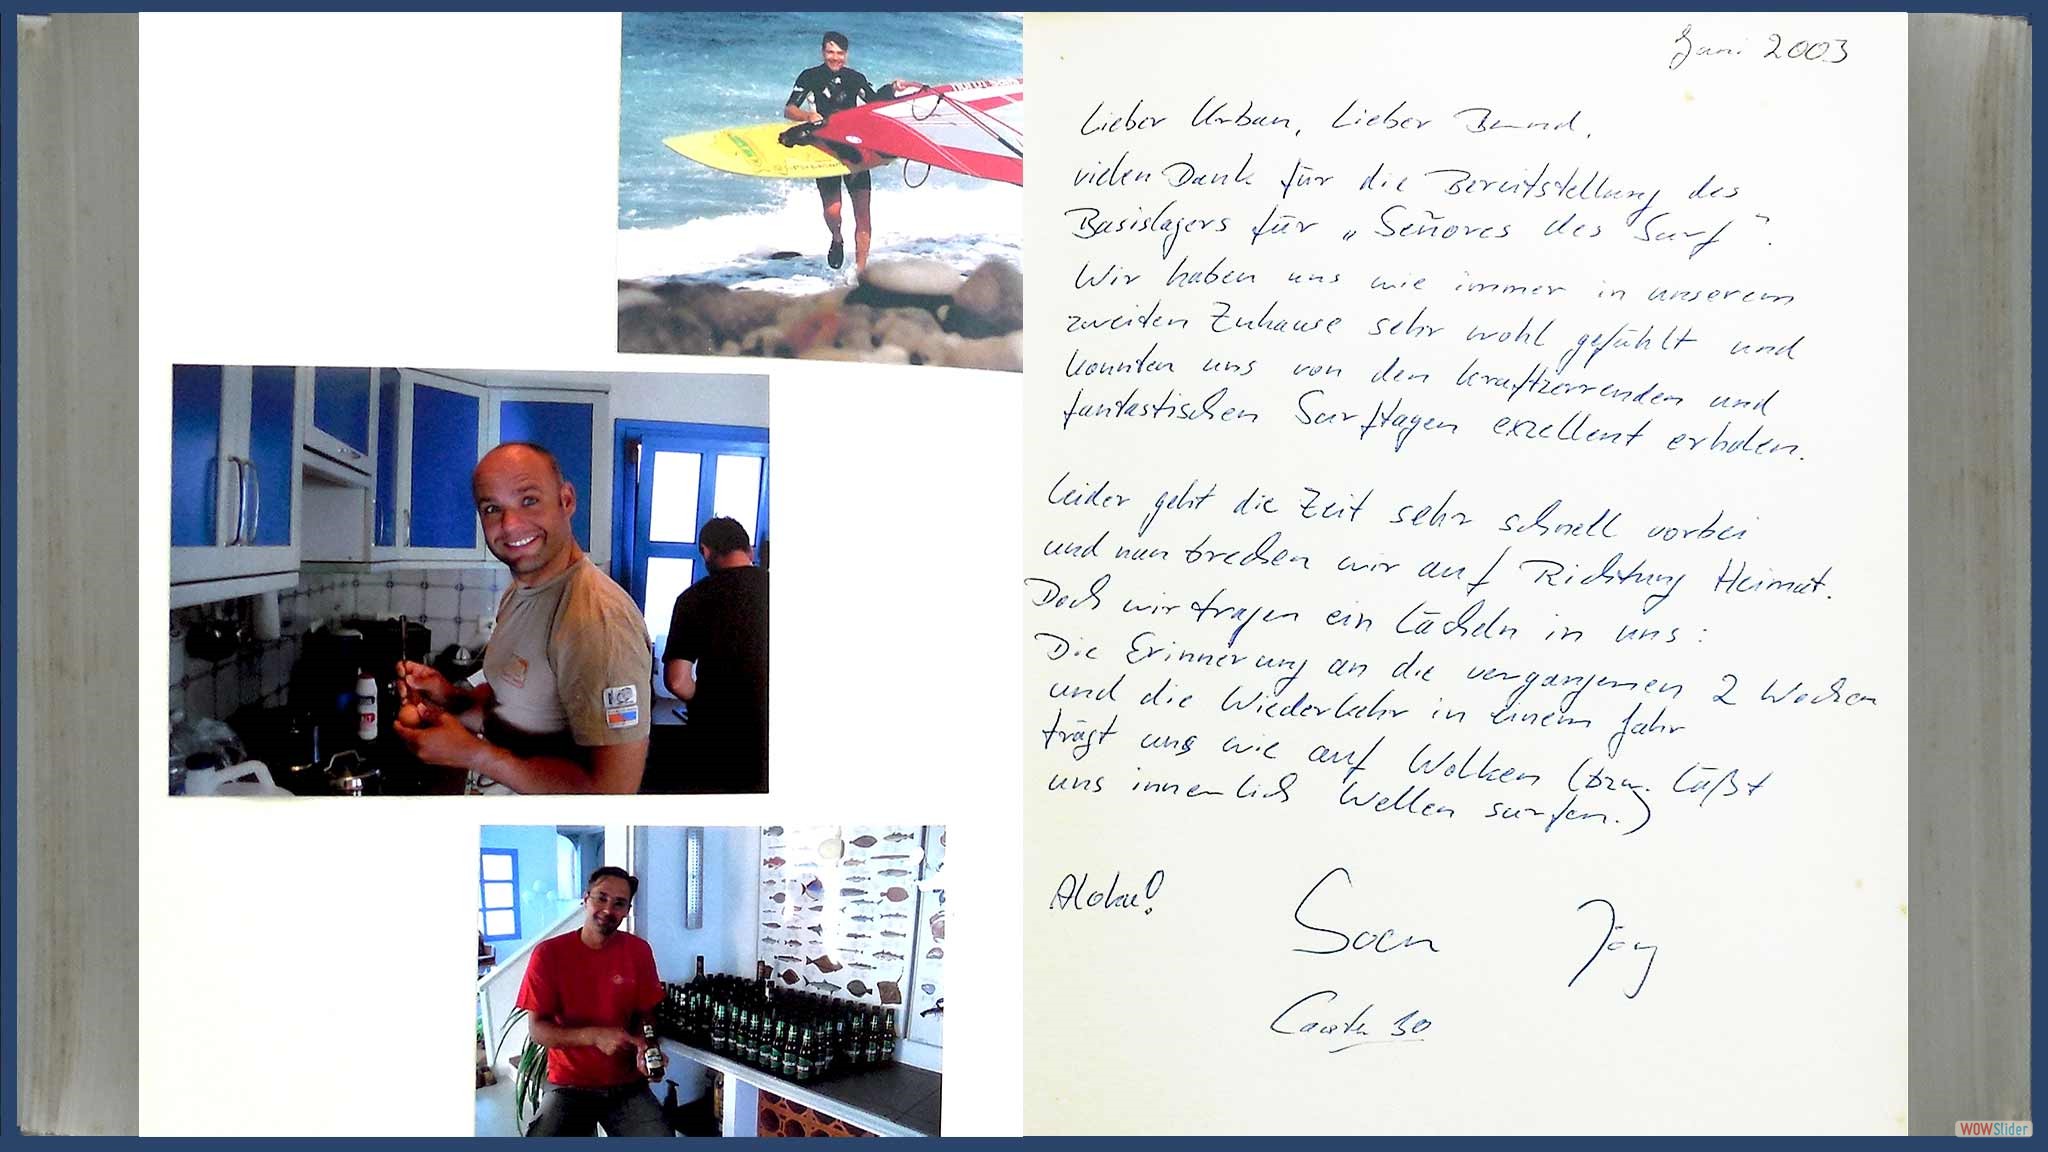 Juni 2003
Lieber Urban, Lieber Bernd,
vielen Dank für die Bereitstellung des
Basislagers für „Señores des Surf".
Wir haben uns wie immer in unserem
zweiten Zuhause sehr wohl gefühlt und
konnten uns von den kraftzerrenden und
fantastischen Surftagen exzellent erholen.
Leider geht die Zeit sehr schnell vorbei
und nun brechen wir auf Richtung Heimat.
Doch wir tragen ein Lächeln in uns:
Die Erinnerung an die vergangenen 2 Wochen
und die Wiederkehr in einem Jahr
trägt uns wie auf Wolken (bzw. läßt
uns innerlich Wellen surfen.)
Aloha!
Soen Jörg
WOWSlider